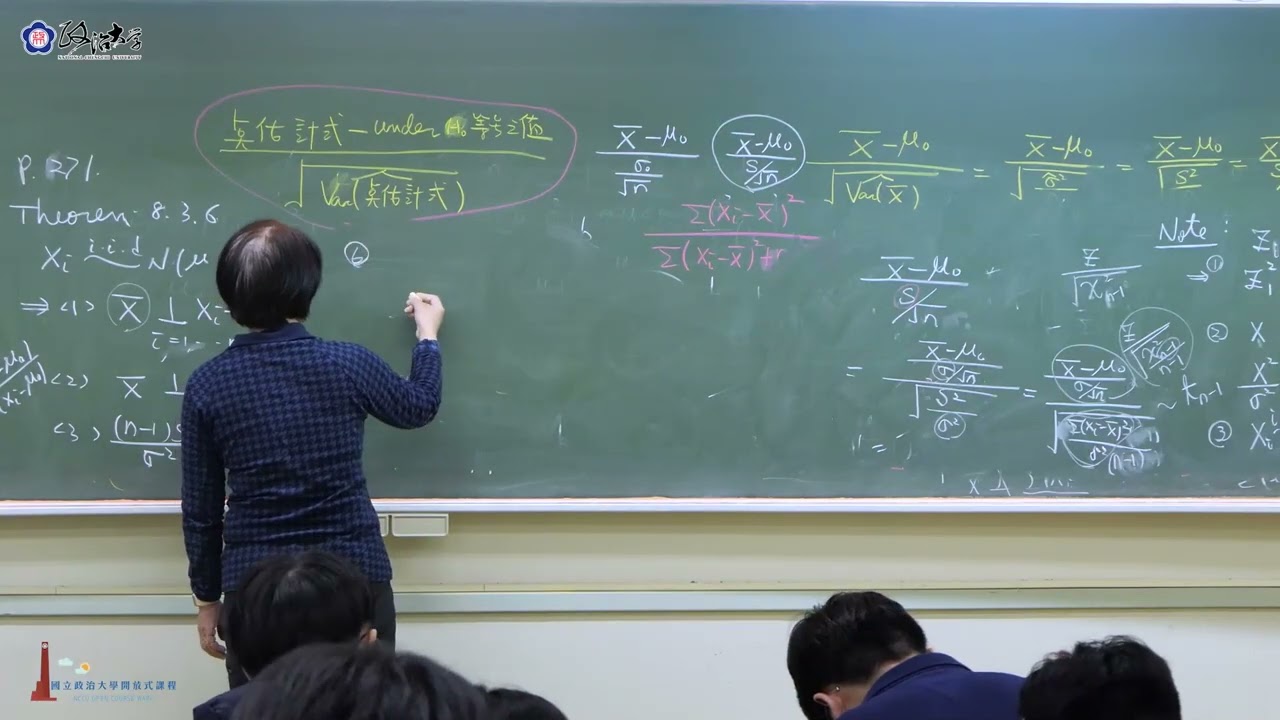 政治大学
NATIONAL CHENGCHI UNIVERSITY
P. 271.
Theorem 8.3.6
Xi i.i.d ~ N(μ
⇒ <1> X̄ ⊥ Xi-
i=1,
<2> X̄ ⊥
<3> (n-1)S / σ²
点估計式 - under H₀ 等号之值
√Var(点估計式)
⑥
X̄-μ₀ / σ₀/√n
X̄-μ₀ / S/√n
Σ(Xi-X̄)² / Σ(Xi-X̄)²+n
X̄-μ₀ / √Var(X̄) = X̄-μ₀ / √σ̂² = X̄-μ₀ / √S² =
X̄-μ₀ / S/√n
Z / √χ²n-1
= X̄-μ₀ / σ/√n / √S²/σ² = X̄-μ₀ / σ/√n / √Σ(Xi-X̄)²/σ²(n-1) ~ tn-1
Note :
⇒ ① Zi
Z²
② X
X²
σ²
③ Xi
國立政治大學開放式課程
NCCU OPEN COURSE WARE